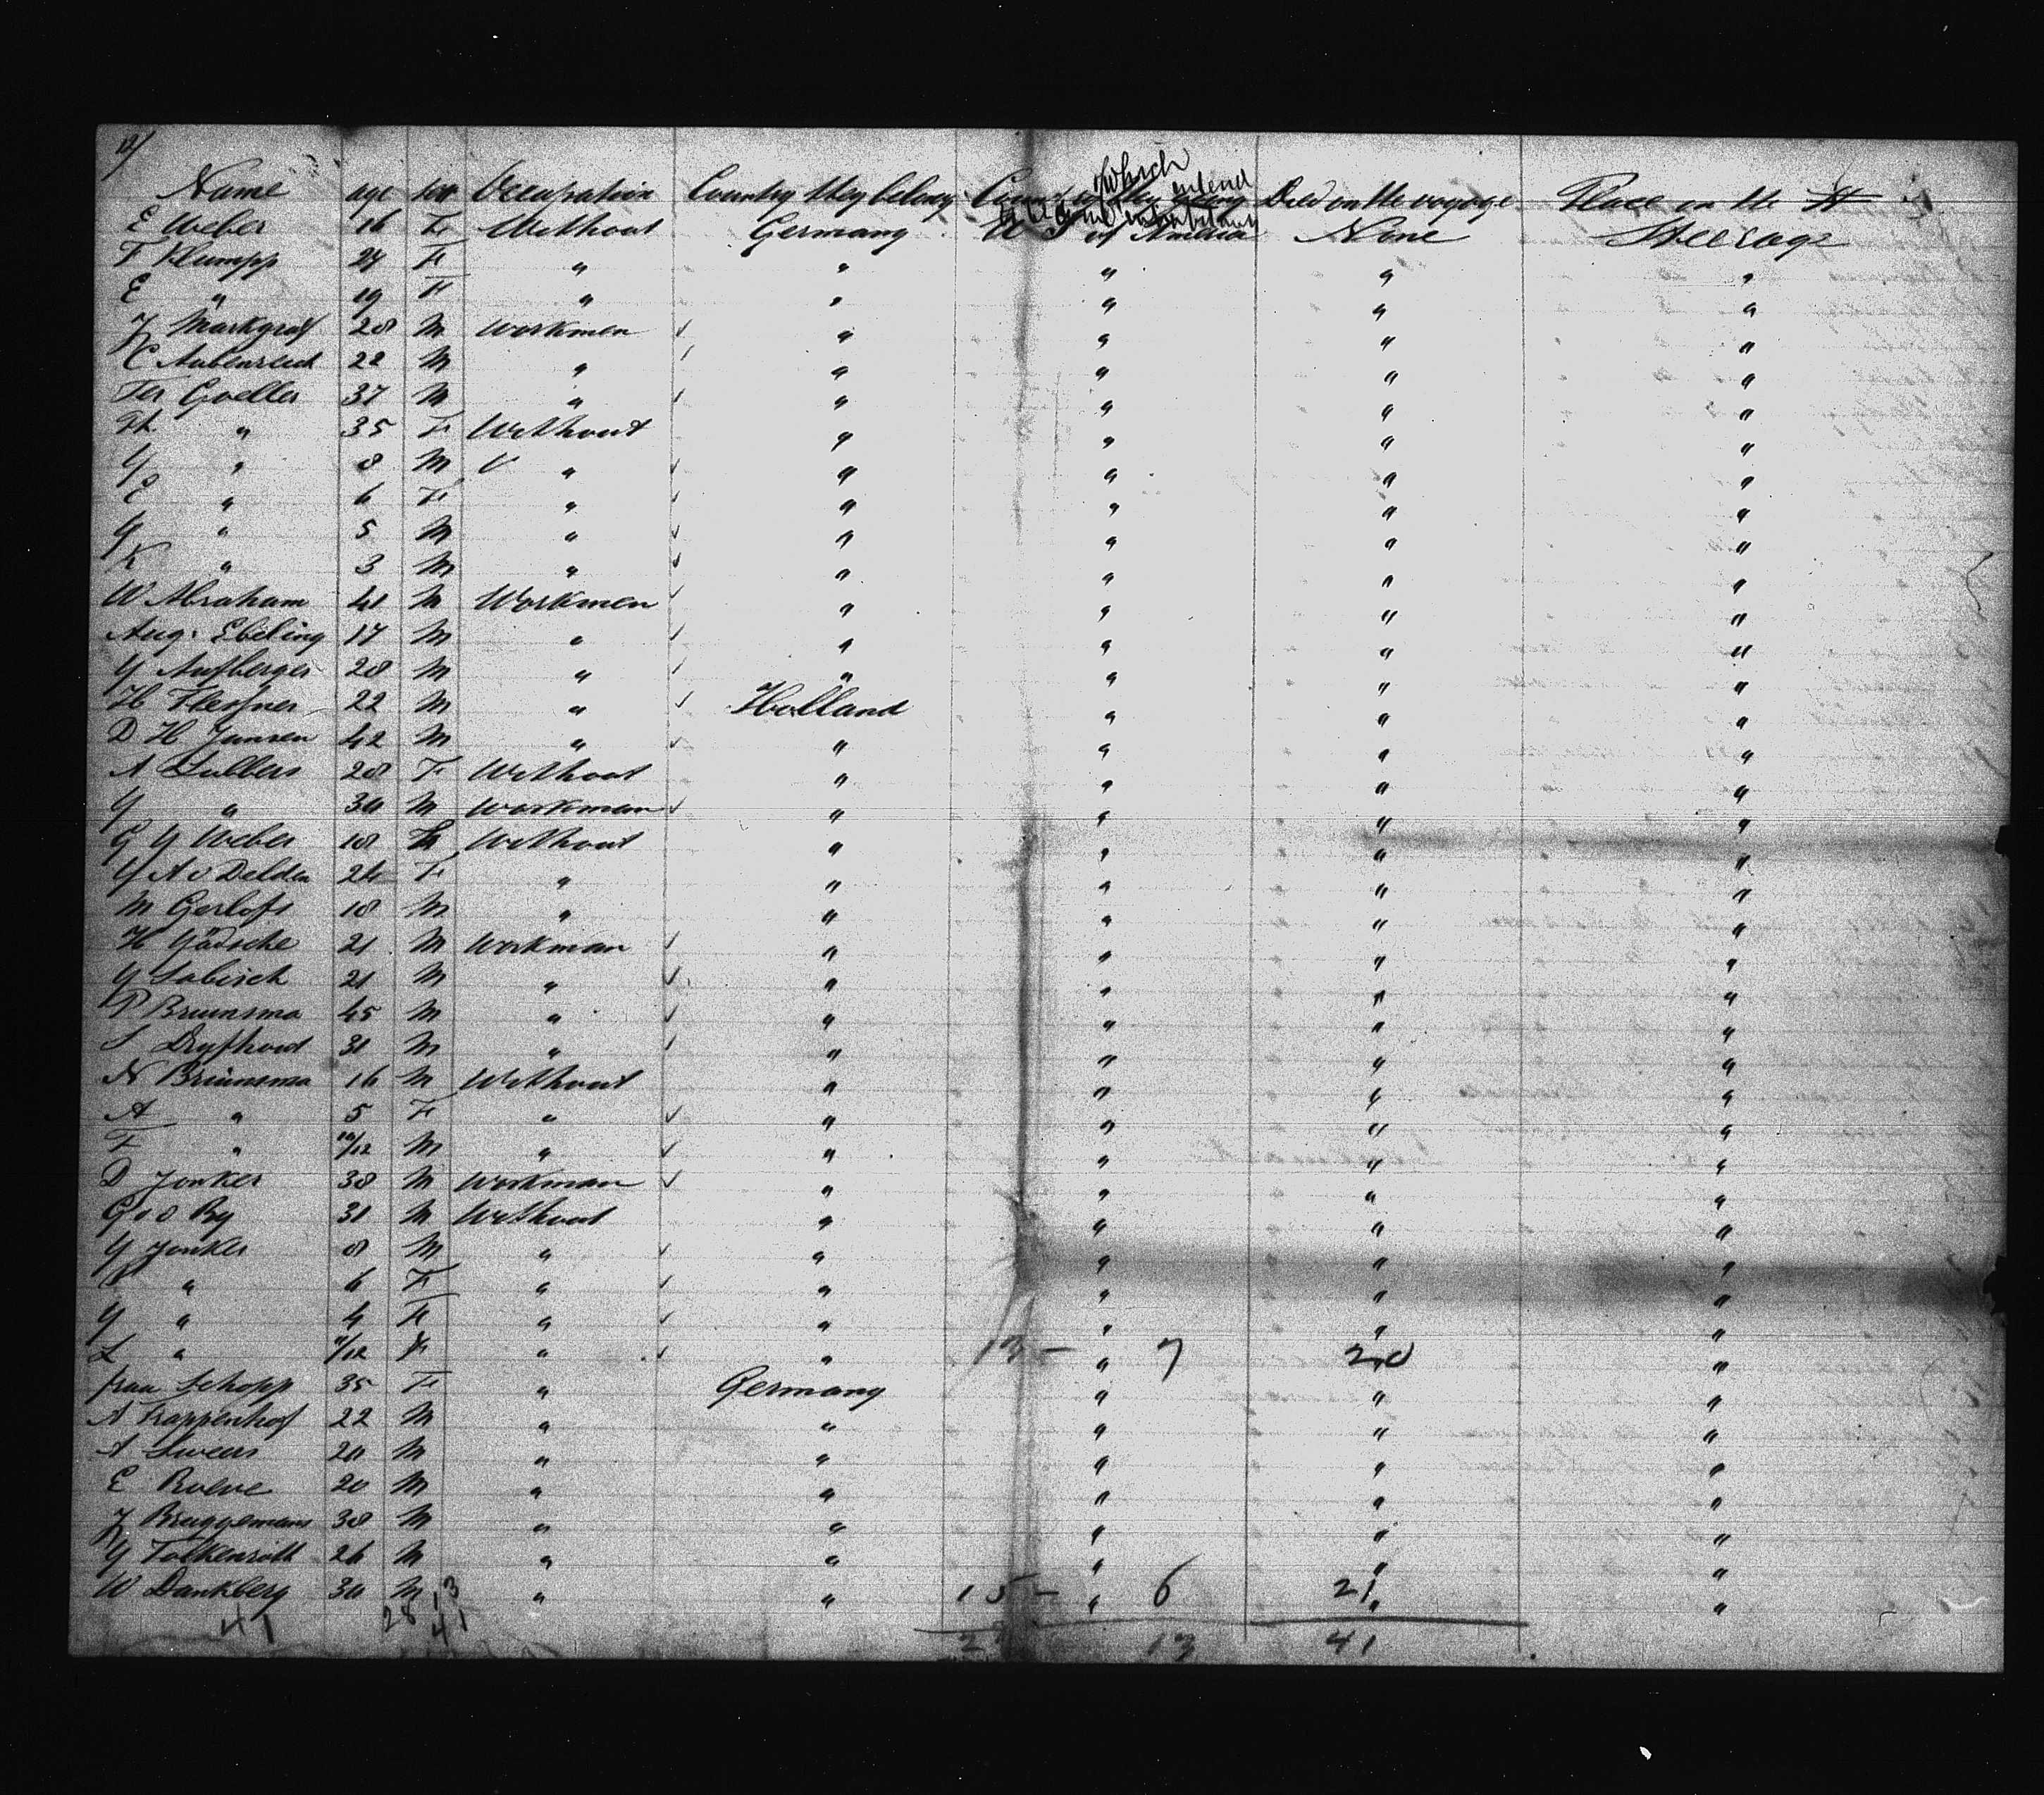 12/
Name age sex Occupation Country they belong Country which they intend to become inhabitants Died on the voyage Place on the St
E Weber 16 F Without Germany U S of America None Steerage
F Klumpp 24 F " " " " "
E " 19 F " " " " "
J Markgraf 28 M Workmen " " " "
C 22 M " " " " "
Goeller 37 M " " " " "
" 35 F Without " " " "
Y " 8 M " " " " "
C " 6 F " " " " "
Y " 5 M " " " " "
K " 3 M " " " " "
W Abraham 41 M Workmen " " " "
Aug. Ebeling 17 M " " " " "
Y Aufberger 28 M " " " " "
H Flessner 22 M " Holland " " "
D H Jansen 42 M " " " " "
A Lulbers 28 F Without " " " "
Y " 30 M Workman " " " "
G Y Weber 18 Without " " " "
Y A v Delden 24 F " " " " "
M Gerlofs 18 M " " " " "
H Gädsche 21 M Workman " " " "
Y Labisch 21 M " " " " "
P Bruinsma 45 M " " " " "
S Dryfhout 31 M " " " " "
N Bruinsma 16 M Without " " " "
A " 5 F " " " " "
F " 10/12 M " " " " "
D Jonker 38 M Workman " " " "
G v d By 31 M Without " " " "
Y Jonker 8 M " " " " "
" 6 F " " " " "
Y " 4 F " " " " "
L " 11/12 F " " 13 - " 7 20 "
frau Schopp 35 F " Germany " " "
A Trappenhof 22 M " " " " "
A Sweers 20 M " " " " "
E Roeve 20 M " " " " "
J Bruggemans 38 M " " " " "
Y Tolkenroth 26 M " " " " "
W Dankberg 30 M " " 15 - " 6 21 " "
41 28 13 41 13 41